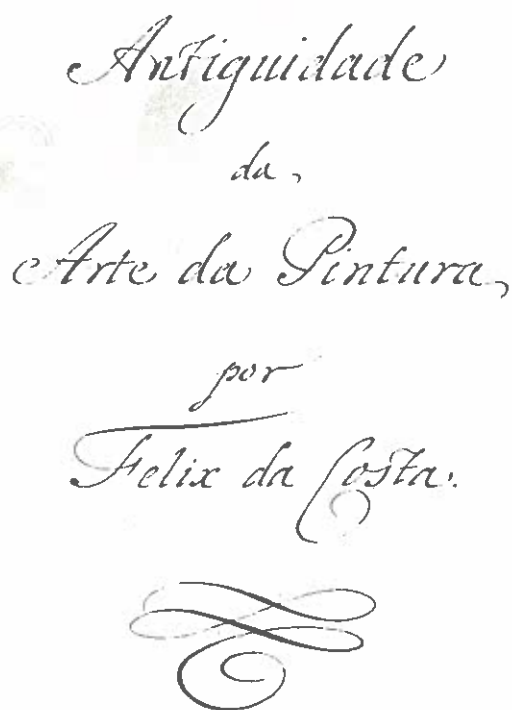 Antiguidade
da
Arte da Pintura,
por
Felix da Costa.